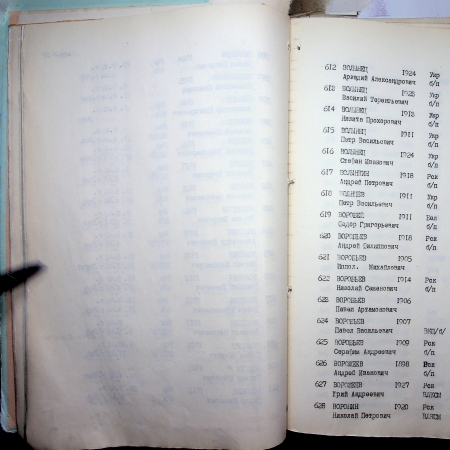 612 ВОЛЫНЕЦ 1924 Укр
Аркадий Александрович б/п
613 ВОЛЫНЕЦ 1923 Укр
Василий Терентьевич б/п
614 ВОЛЫНЕЦ 1913 Укр
Никита Прохорович б/п
615 ВОЛЫНЕЦ 1911 Укр
Петр Васильевич б/п
616 ВОЛЫНЕЦ 1924 Укр
Степан Иванович б/п
617 ВОЛЫНКИН 1918 Рск
Андрей Петрович б/п
618 1911 Укр
Петр Васильевич б/п
619 ВОРОБЕЦ 1911 Бел
Сидор Григорьевич б/п
620 ВОРОБЬЕВ 1918 Рск
Андрей Филиппович б/п
621 ВОРОБЬЕВ 1905
Михайлович
622 ВОРОБЬЕВ 1914 Рск
Николай Семенович б/п
623 ВОРОБЬЕВ 1906
Павел Артамонович
624 ВОРОБЬЕВ 1907
Павел Васильевич ВКП/б/
625 ВОРОБЬЕВ 1909 Рск
Серафим Андреевич б/п
626 ВОРОБЬЕВ 1898 Рск
Андрей Иванович б/п
627 1927 Рск
Юрий Андреевич ВЛКСМ
628 ВОРОНИН 1920 Рск
Николай Петрович ВЛКСМ